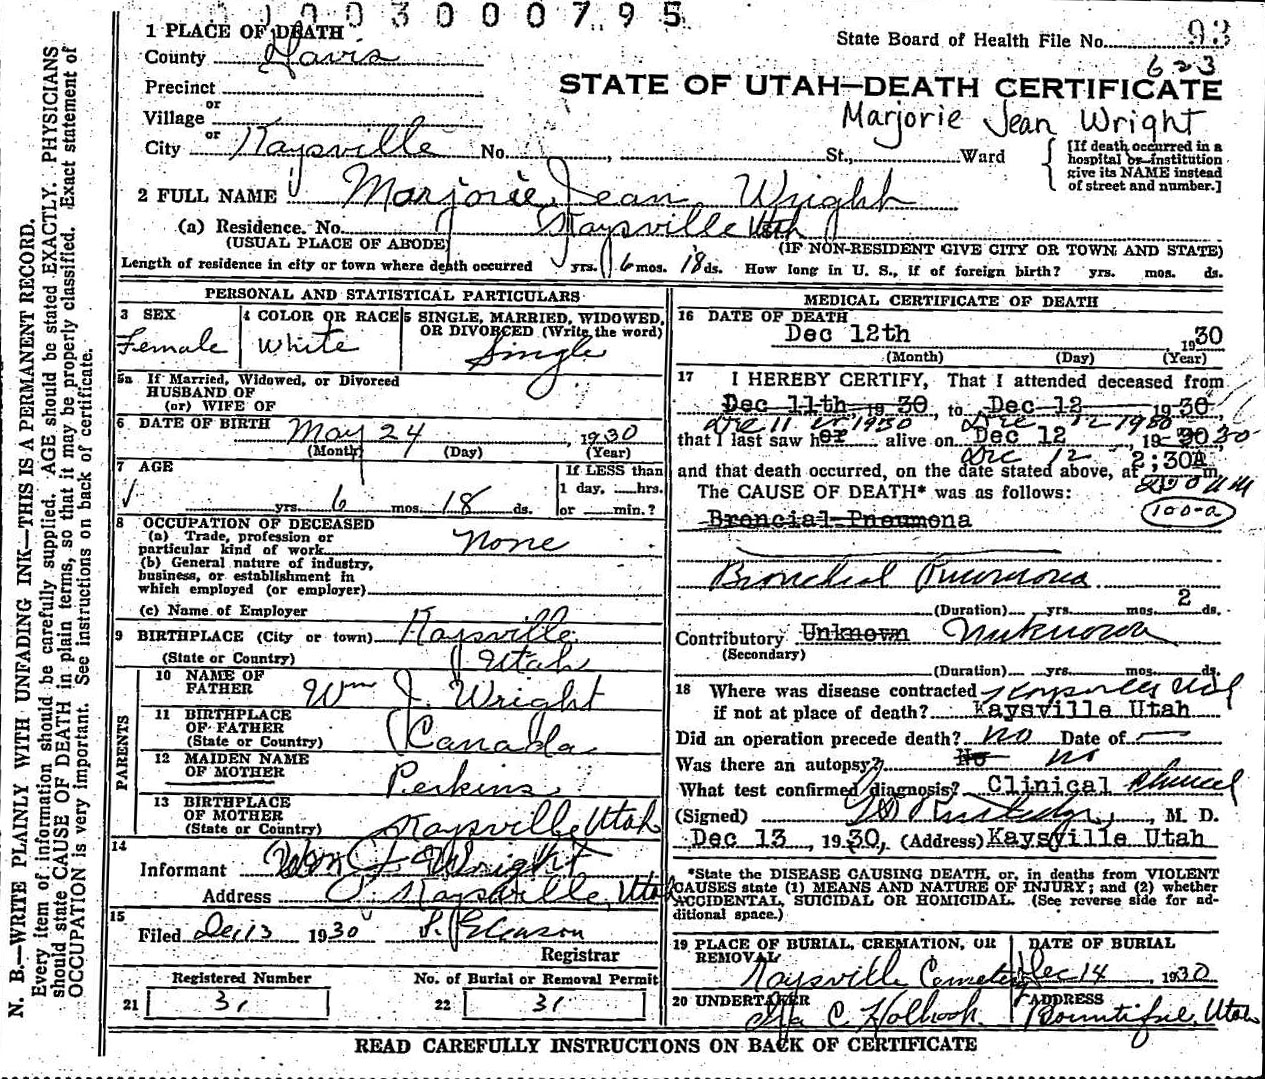 003000795
1 PLACE OF DEATH
State Board of Health File No. 93
County Davis
623
STATE OF UTAH—DEATH CERTIFICATE
Precinct
or
Village
Marjorie Jean Wright
or
City Kaysville No. , St., Ward
[If death occurred in a hospital or institution give its NAME instead of street and number.]
2 FULL NAME Marjorie Jean Wright
(a) Residence. No. Kaysville Utah
(USUAL PLACE OF ABODE) (IF NON-RESIDENT GIVE CITY OR TOWN AND STATE)
Length of residence in city or town where death occurred yrs. 6 mos. 18 ds. How long in U. S., if of foreign birth? yrs. mos. ds.
PERSONAL AND STATISTICAL PARTICULARS
3 SEX
Female
4 COLOR OR RACE
White
5 SINGLE, MARRIED, WIDOWED, OR DIVORCED (Write the word)
Single
5a If Married, Widowed, or Divorced
HUSBAND OF
(or) WIFE OF
6 DATE OF BIRTH May 24, 1930
(Month) (Day) (Year)
7 AGE
yrs. 6 mos. 18 ds.
If LESS than
1 day, hrs.
or min.?
8 OCCUPATION OF DECEASED
(a) Trade, profession or
particular kind of work None
(b) General nature of industry,
business, or establishment in
which employed (or employer)
(c) Name of Employer
9 BIRTHPLACE (City or town) Kaysville
(State or Country) Utah
PARENTS
10 NAME OF
FATHER Wm J. Wright
11 BIRTHPLACE
OF FATHER
(State or Country) Canada
12 MAIDEN NAME
OF MOTHER Perkins
13 BIRTHPLACE
OF MOTHER
(State or Country) Kaysville Utah
14
Informant Wm J. Wright
Address Kaysville, Utah
15
Filed Dec 13 1930 Gleason
Registrar
Registered Number No. of Burial or Removal Permit
21 31 22 31
MEDICAL CERTIFICATE OF DEATH
16 DATE OF DEATH
Dec 12th 1930
(Month) (Day) (Year)
17 I HEREBY CERTIFY, That I attended deceased from
Dec 11th, 19 30, to Dec 12 19 30,
Dec 11 1930 Dec 12 1930
that I last saw her alive on Dec 12 19 30 30
Dec 12
and that death occurred, on the date stated above, at 2;30A m.
The CAUSE OF DEATH* was as follows:
100-a
Broncial Pneumona
Bronchial Pneumona
(Duration) yrs. mos. 2 ds.
Contributory Unknown Unknown
(Secondary)
(Duration) yrs. mos. ds.
18 Where was disease contracted Kaysville Utah
if not at place of death? Kaysville Utah
Did an operation precede death? No Date of —
Was there an autopsy? No no
What test confirmed diagnosis? Clinical
(Signed) , M. D.
Dec 13, 1930, (Address) Kaysville Utah
*State the DISEASE CAUSING DEATH, or, in deaths from VIOLENT
CAUSES state (1) MEANS AND NATURE OF INJURY; and (2) whether
ACCIDENTAL, SUICIDAL OR HOMICIDAL. (See reverse side for ad-
ditional space.)
19 PLACE OF BURIAL, CREMATION, OR
REMOVAL
Kaysville Cemetery
DATE OF BURIAL
Dec 14 1930
20 UNDERTAKER
C. Holbrook
ADDRESS
Bountiful, Utah
READ CAREFULLY INSTRUCTIONS ON BACK OF CERTIFICATE
N. B.—WRITE PLAINLY WITH UNFADING INK—THIS IS A PERMANENT RECORD.
Every item of information should be carefully supplied. AGE should be stated EXACTLY. PHYSICIANS
should state CAUSE OF DEATH in plain terms, so that it may be properly classified. Exact statement of
OCCUPATION is very important. See instructions on back of certificate.